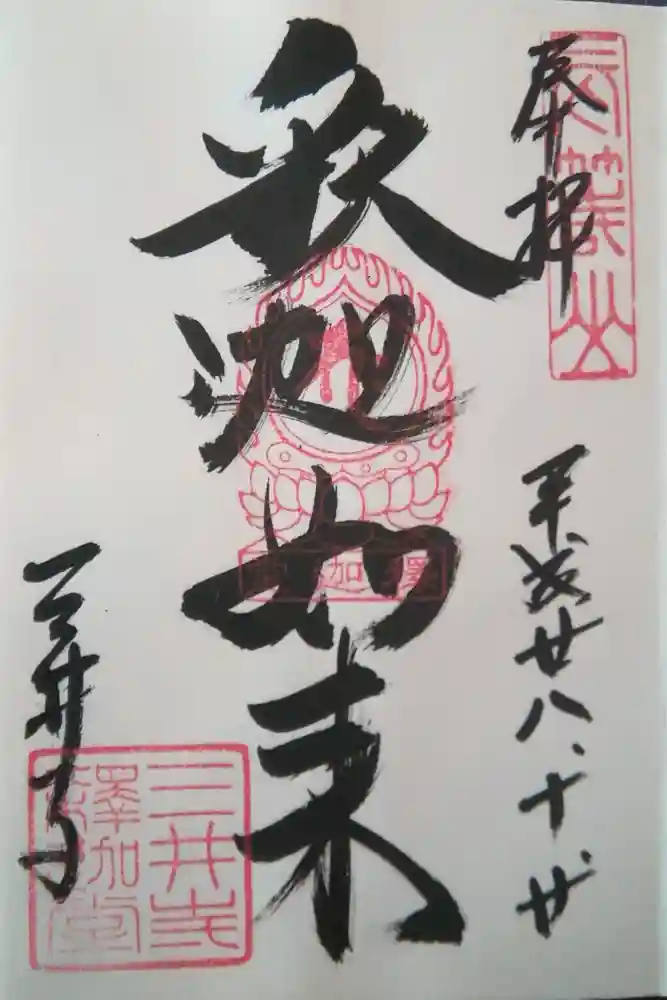 奉拝
長等山
平成廿八、十、廿
釈迦如来
釋迦堂
三井寺
三井寺
釋迦堂